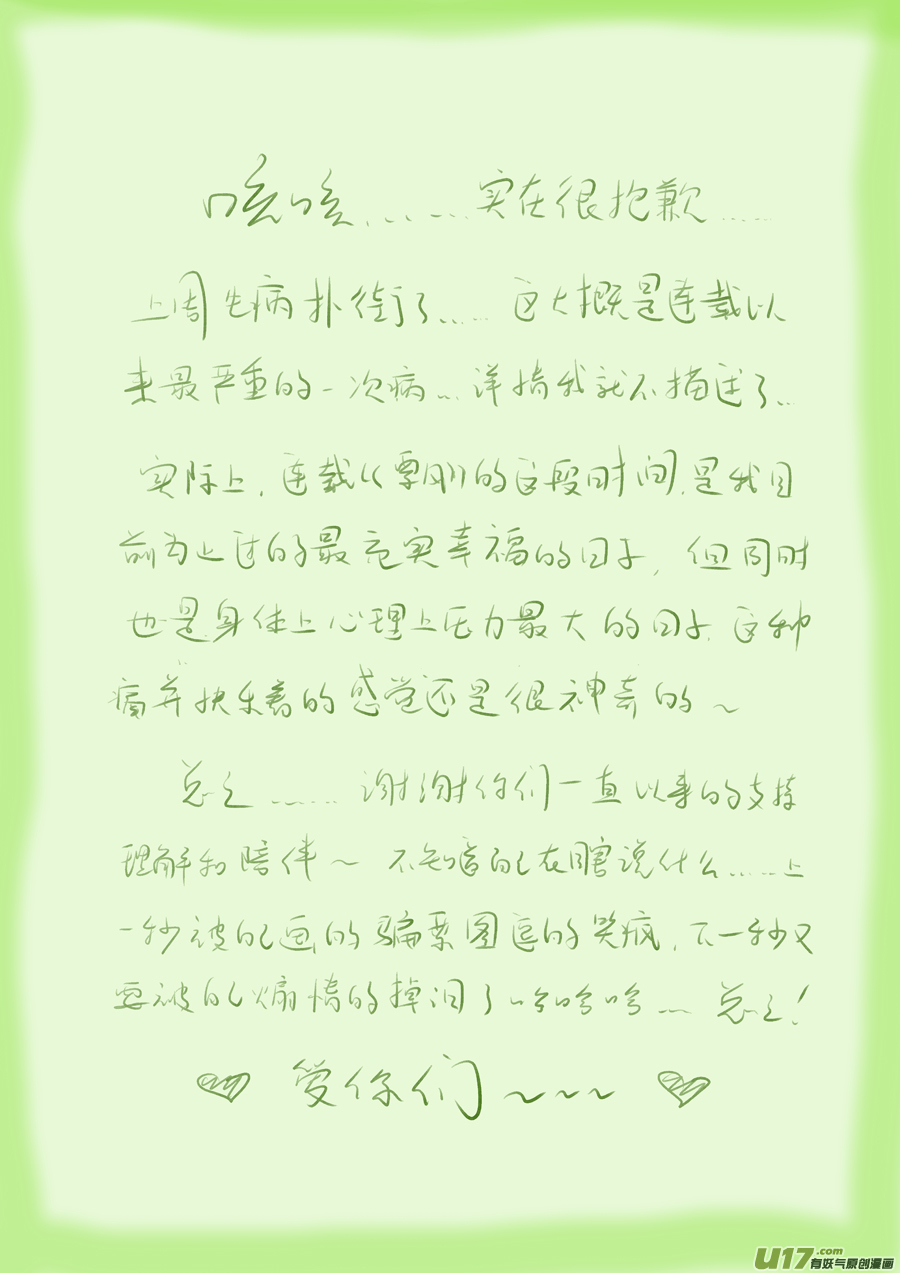 咳咳......实在很抱歉......
上周生病扑街了......这大概是连载以
来最严重的一次病...详情我就不描述了...
实际上,连载《栗刚》的这段时间,是我目
前为止过的最充实幸福的日子,但同时
也是身体上心理上压力最大的日子,这种
痛并快乐着的感觉还是很神奇的~
总之......谢谢你们一直以来的支持
理解和陪伴~不知道自己在瞎说什么......上
一秒被自己画的骗票图逗的哭疯,下一秒又
要被自己煽情的掉泪了哈哈哈...总之!
爱你们~~~
U17.com
有妖气原创漫画